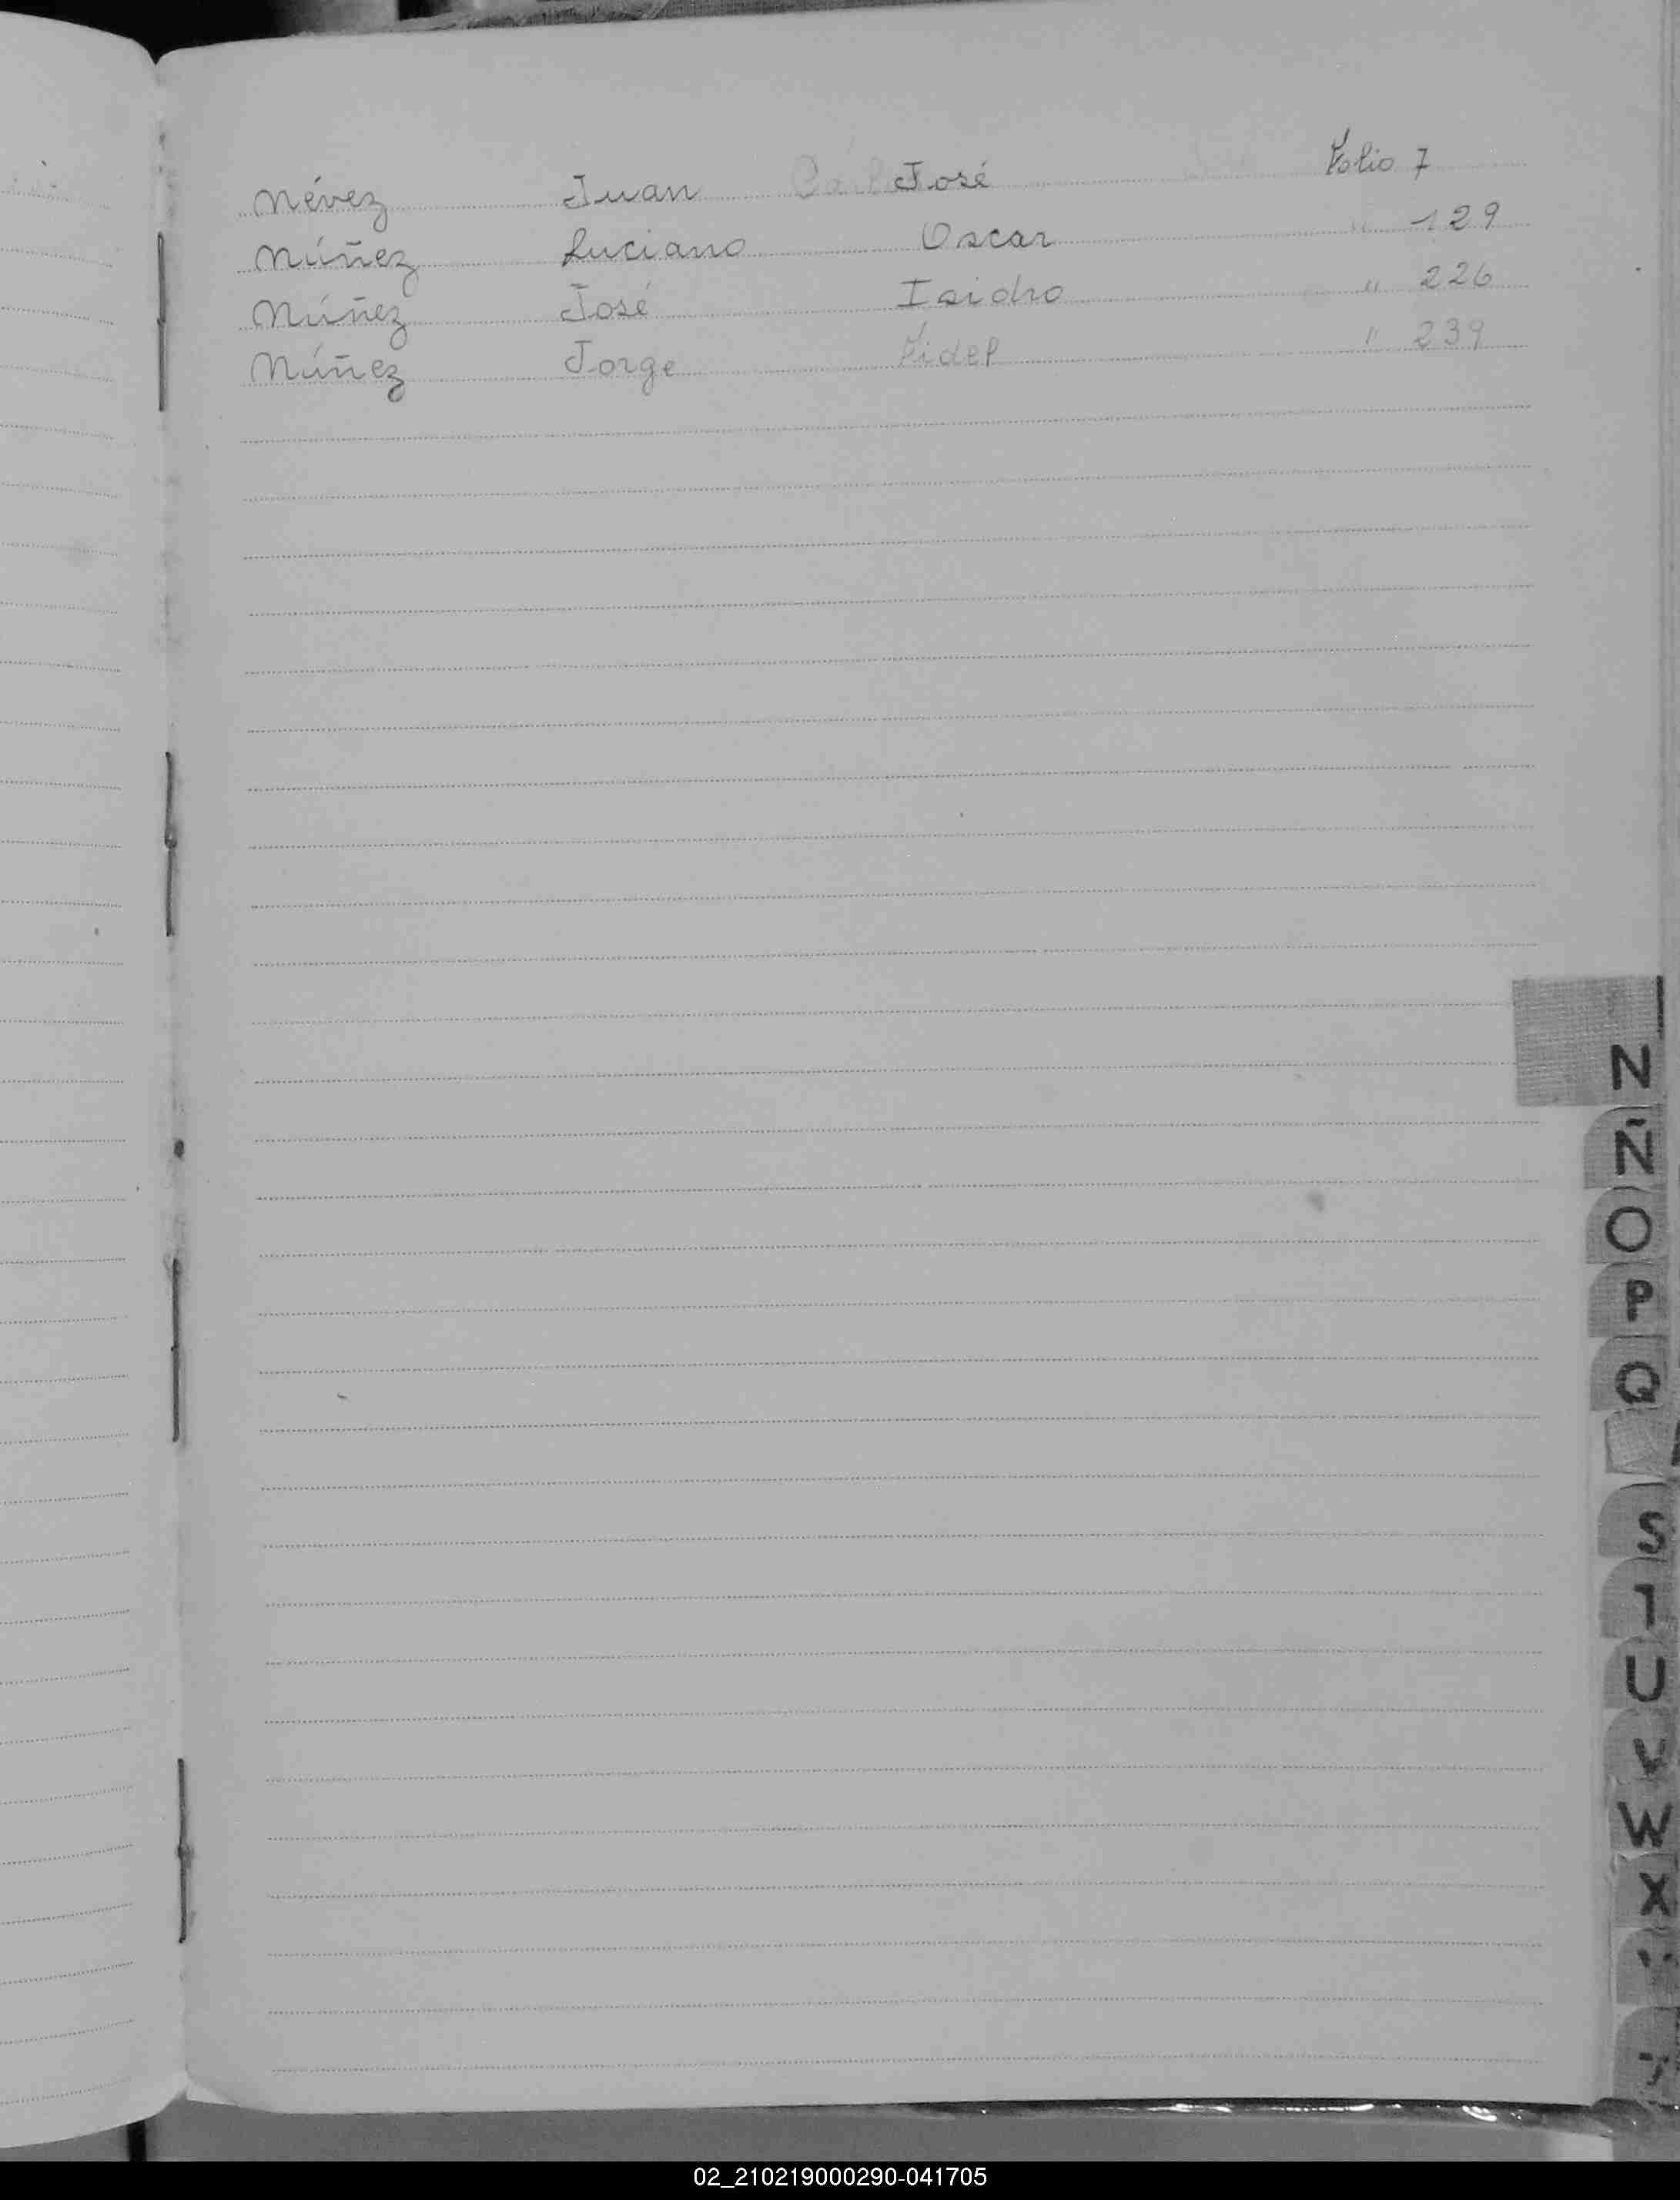 Névez Juan José Folio 7
Núñez Luciano Oscar " 129
Núñez José Isidro " 226
Núñez Jorge Fidel " 239
N
Ñ
O
P
Q
S
T
U
V
W
X
02_210219000290-041705